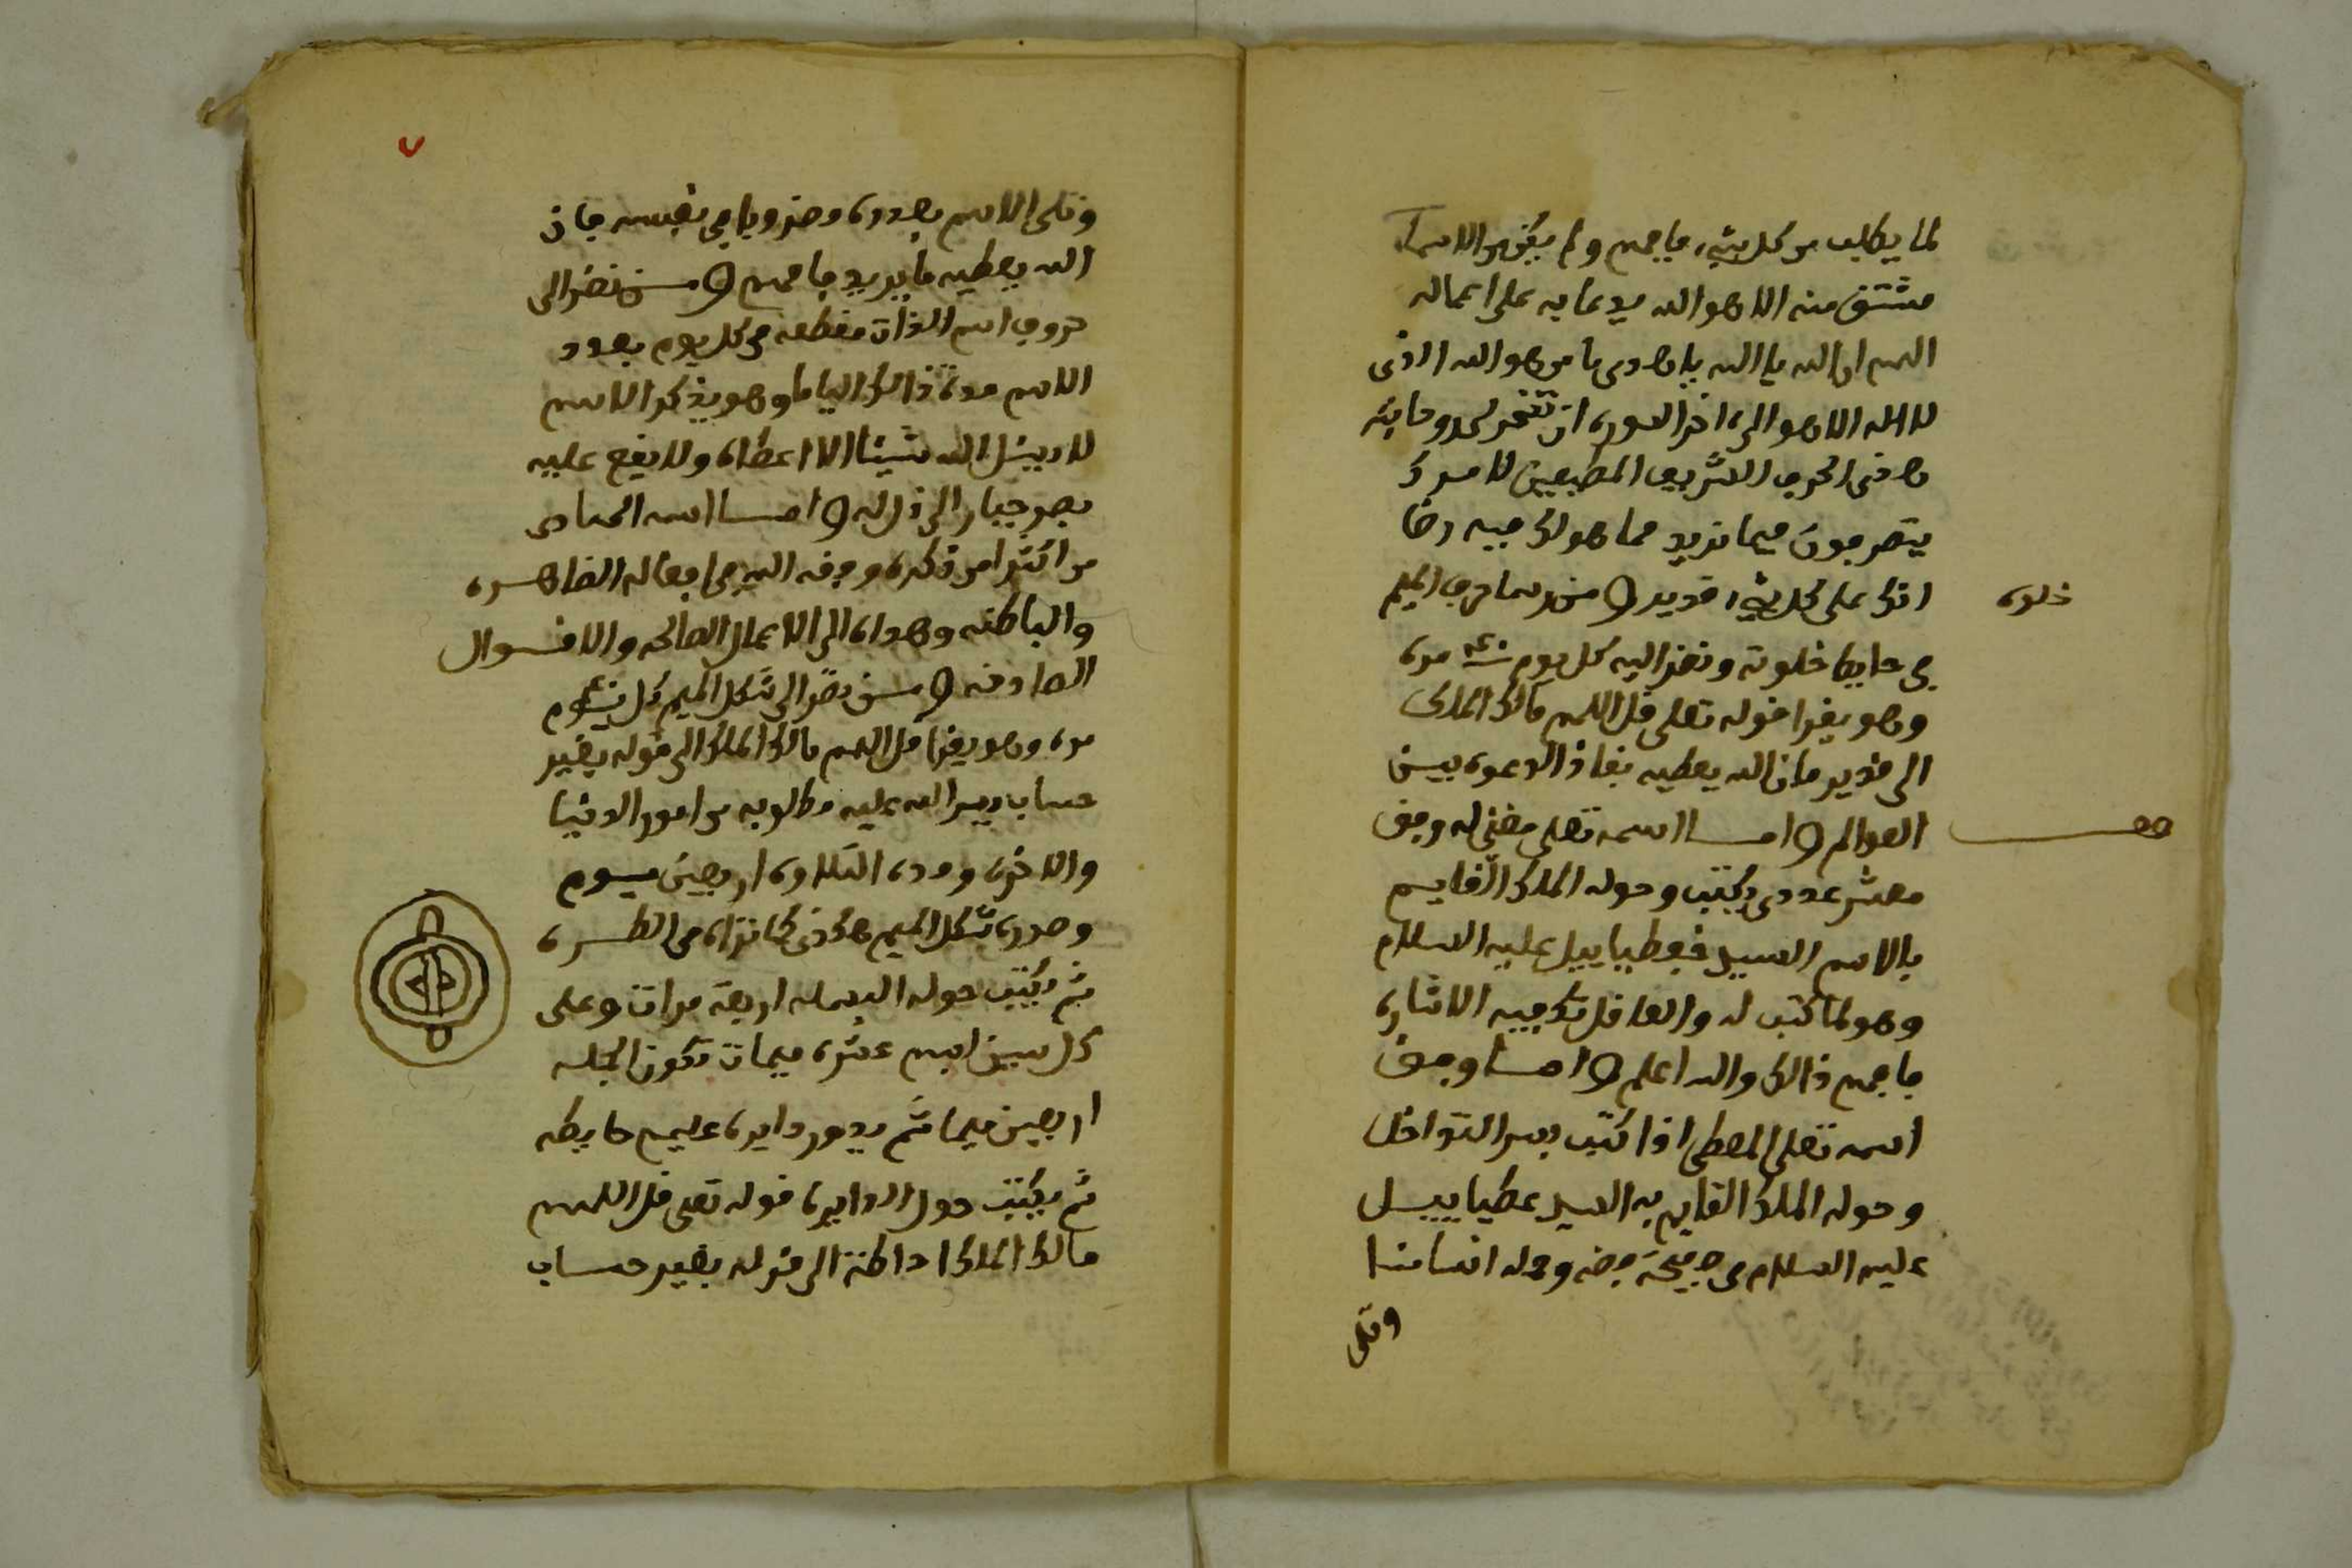 لما يطلب من كل شيء فافهم ولم يكن من الاسما
مشتق منه الا هو الله يدعا به على اعماله
اللهم ان الله يا الله يا هادي يا من هو الله الذي
لا اله الا هو الى اخر السورة ان تسخر لي روحانية
هاذي الحرف الشريف المطيعين لامرك
يتصرفون فيما نريد مما هو لك فيه رضا
انك على كل شيء قدير ومن رسم حرف الميم
خلوة
في حايط خلوته ونضر اليه كل يوم ٤٠ مرة
وهو يقرا قوله تعلى قل اللهم مالك الملك
الى قدير فان الله يعطيه نفاذ الدعوة بين
العوالم واما اسمه تعلى مغني له وفق
معشر عددي يكتب وحوله الملك القايم
بالاسم السيد فعطياييل عليه السلام
وهو لما كتب له والعاقل تكفيه الاشارة
فافهم ذالك والله اعلم واما وفق
اسمه تعلى المعطي اذا كتب بسر التداخل
وحوله الملك القايم به السيد عطياييل
عليه السلام في صفيحة فضه وحمله انسانا
وتلى
٧
وتلى الاسم بعدده وحزويا في نفسه فان
الله يعطيه ما يريد فافهم ومن نضر الى
حروف اسم الذات مقطعه في كل يوم بعدد
الاسم مدة ذالك اياما وهو يذكر الاسم
لا ريسل الله شيئا الا اعطاه ولا يقع عليه
بصر جبار الى ذل له واما اسمه الهادي
من اكثر من ذكره وفقه الله في افعاله الظاهره
والباطنه وهداه الى الاعمال الصالحه والاقوال
الصادقه ومن نضر الى شكل الميم كل يوم ٤٠
مرة وهو يقرا قل اللهم مالك الملك الى قوله بغير
حساب يسر الله عليه مطلوبه من امور الدنيا
والاخرة ومدة التلاوة اربعين يوم
وصورة شكل الميم هاكذى كما تراه في الطره
ثم يكتب حوله البسمله اربعة مرات وعلى
كل سين اسم عشره ميمات تكون الجمله
اربعين ميما ثم يدور دايره عليهم حايطه
ثم يكتب حول الدايره قوله تعلى قل اللهم
مالك الملك احاطة الى قوله بغير حساب